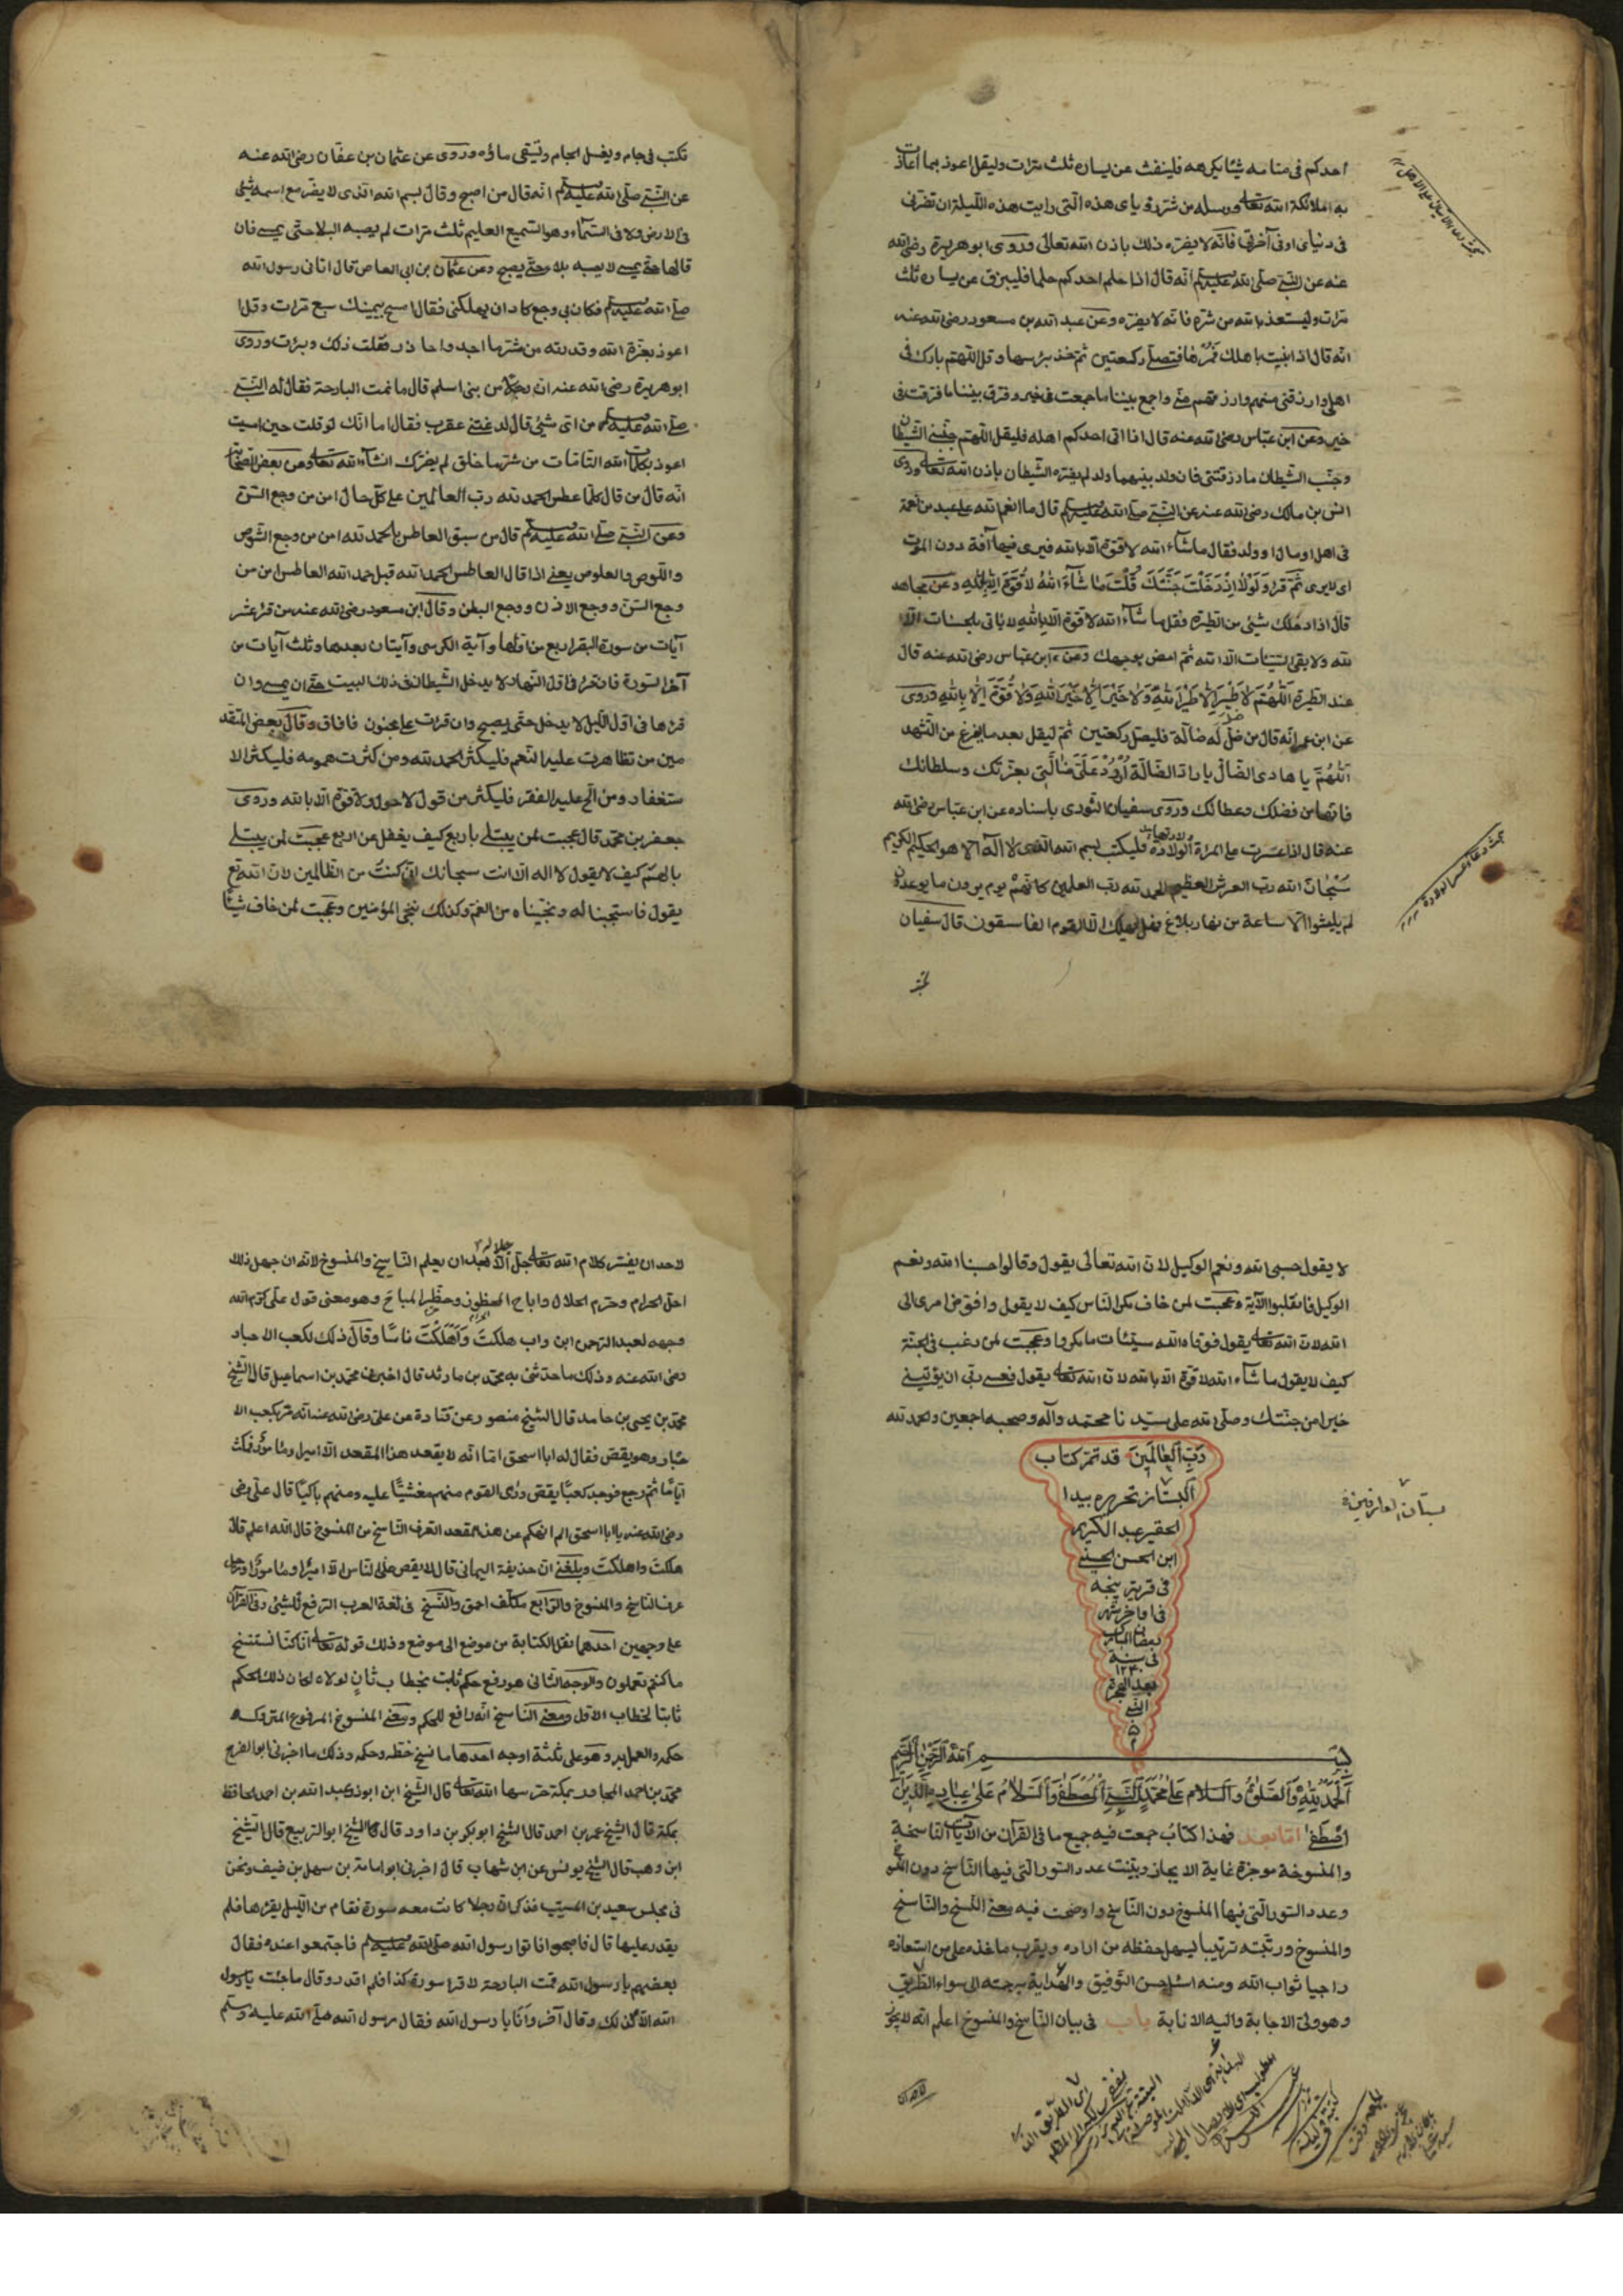 احدكم فى منامه شيئا يكرهه فلينفث عن يساره ثلث مرات وليقل اعوذ بما اعاذت
به ملائكة الله تعالى ورسله من شر رؤياى هذه التى رايت هذه الليلة ان تضرنى
فى دنياى او فى آخرتى فانه لا يضره ذلك باذن الله تعالى وروى ابو هريرة رضى الله
عنه عن النبى صلى الله عليه وسلم انه قال اذا حلم احدكم حلما فليبزق عن يساره ثلث
مرات وليستعذ بالله من شره فانه لا يضره وعن عبد الله بن مسعود رضى الله عنه
انه قال اذا بنيت باهلك فمرها فتصلى ركعتين ثم خذ برسها وقل اللهم بارك فى
اهلى وارزقنى منهم وارزقهم منى واجمع بيننا ما جمعت فى خير وفرق بيننا ما فرقت فى
خير وعن ابن عباس رضى الله عنه قال اذا اتى احدكم اهله فليقل اللهم جنبنى الشيطان
وجنب الشيطان ما رزقتنى فان ولد بينهما ولد لم يضره الشيطان باذن الله تعالى وروى
انس بن مالك رضى الله عنه عن النبى صلى الله عليه وسلم قال ما انعم الله على عبد من نعمة
فى اهل او مال او ولد فقال ما شاء الله لا قوة الا بالله فيرى فيها آفة دون الموت
اى لا يرى ثم قرء ولولا اذ دخلت جنتك قلت ما شاء الله لا قوة الا بالله وعن مجاهد
قال اذا دخلك شيئ من الطيرة فقل ما شاء الله لا قوة الا بالله لا ياتى بالحسنات الا
الله ولا يقى السيئات الا الله ثم امض بوجهك وعن ابن عباس رضى الله عنه قال
عند الطيرة اللهم لا طير الا طير الله ولا خير الا خير الله ولا قوة الا بالله وروى
عن ابن عمر انه قال من ضل له ضالة فليصل ركعتين ثم ليقل بعد ما يفرغ من التشهد
اللهم يا هادى الضال يا راد الضالة اردد على ضالتى بعزتك وسلطانك
فانها من فضلك وعطائك وروى سفيان الثورى باسناده عن ابن عباس رضى الله
عنه قال اذا عسرت على المراة الولادة فليكتب بسم الله الذى لا اله الا هو الحكيم الكريم
سبحان الله رب العرش العظيم الحمد لله رب العلمين كانهم يوم يرون ما يوعدون
لم يلبثوا الا ساعة من نهار بلاغ فهل يهلك الا القوم الفاسقون قال سفيان
تكتب فى جام ويغسل الجام وتسقى ماؤه وروى عن عثمان بن عفان رضى الله عنه
عن النبى صلى الله عليه وسلم انه قال من اصبح وقال بسم الله الذى لا يضر مع اسمه شيئ
فى الارض ولا فى السماء وهو السميع العليم ثلث مرات لم يصبه البلا حتى يمسى فان
قالها حتى يمسى لا يصيبه بلا حتى يصبح وعن عثمان بن ابى العاص قال اتانى رسول الله
صلى الله عليه وسلم فكان بى وجع كاد ان يهلكنى فقال امسح بيمينك سبع مرات وقل
اعوذ بعزة الله وقدرته من شر ما اجد واحاذر ففلت ذلك وبرئت وروى
ابو هريرة رضى الله عنه ان رجلا من بنى اسلم قال ما نمت البارحة فقال له النبى
صلى الله عليه وسلم من اى شيئ قال لدغتنى عقرب فقال اما انك لو قلت حين امسيت
اعوذ بكلمات الله التامات من شر ما خلق لم يضرك انشاء الله تعالى وعن بعض الصحابة
انه قال من قال كلما عطس الحمد لله رب العالمين على كل حال امن من وجع السن
وعن النبى صلى الله عليه وسلم قال من سبق العاطس بالحمد لله امن من وجع الشوص
واللوص والعلوص يعنى اذا قال العاطس الحمد لله قبل حمد الله العاطس امن من
وجع السن ووجع الاذن ووجع البطن وقال ابن مسعود رضى الله عنه من قرء عشر
آيات من سورة البقر اربع من اولها وآية الكرسى وآيتان بعدها وثلث آيات من
آخر السورة فان قرء فى اول النهار لا يدخل الشيطان فى ذلك البيت حتى ان يمسى وان
قرءها فى اول الليل لا يدخل حتى يصبح وان قرئت على مجنون فافاق وقال بعض المتقد
مين من تظاهرت عليه النعم فليكثر الحمد لله ومن كثرت همومه فليكثر الا
ستغفار ومن الح عليه الفقر فليكثر من قول لا حول ولا قوة الا بالله وروى
جعفر بن محمد قال عجبت لمن يبتلى باربع كيف يغفل عن اربع عجبت لمن يبتلى
بالهم كيف لا يقول لا اله الا انت سبحانك انى كنت من الظالمين لان الله تع
يقول فاستجبنا له ونجيناه من الغم وكذلك ننجى المؤمنين وعجبت لمن خاف شيئا
لا يقول حسبى الله ونعم الوكيل لان الله تعالى يقول وقالوا حسبنا الله ونعم
الوكيل فانقلبوا الآية وعجبت لمن خاف مكر الناس كيف لا يقول وافوض امرى الى
الله لان الله تعالى يقول فوقاه الله سيئات ما مكروا وعجبت لمن رغب فى الجنة
كيف لا يقول ما شاء الله لا قوة الا بالله لان الله تعالى يقول فعسى ربى ان يؤتينى
خيرا من جنتك وصلى الله على سيدنا محمد وآله وصحبه اجمعين والحمد لله
رب العالمين قد تمت كتاب
البستان تحريره بيد
الحقير عبد الكريم
ابن الحسن الحسنى
فى قرية بيجه
فى اواخر شهر
رمضان المبارك
فى سنة
١٢٣٠
بعد الهجرة
النبى
م
بستان العارفين
بسم الله الرحمن الرحيم
الحمد لله والصلوة والسلام على محمد النبى المصطفى والسلام على عباده الذين
اصطفى اما بعد فهذا كتاب جمعت فيه جميع ما فى القرآن من الآيات الناسخة
والمنسوخة موجزة غاية الايجاز وبينت عدد السور التى فيها الناسخ دون المنسوخ
وعدد السور التى فيها المنسوخ دون الناسخ واوضحت فيه معنى النسخ والناسخ
والمنسوخ ورتبته ترتيبا ليسهل حفظه من اراده ويقرب ماخذه على من استعاده
راجيا ثواب الله ومنه اسئل حسن التوفيق والهداية برحمته الى سواء الطريق
وهو ولى الاجابة واليه الانابة باب فى بيان الناسخ والمنسوخ اعلم انه لا يجوز
لاحد ان
لاحد ان يفسر كلام الله تعالى جل جلاله الا بعد ان يعلم الناسخ والمنسوخ لانه ان جهل ذلك
احل الحرام وحرم الحلال واباح المحظور وحظر المباح وهو معنى قول على كرم الله
وجهه لعبد الرحمن ابن داب هلكت واهلكت ناسا وقال ذلك لكعب الاحبار
رضى الله عنه وذلك ما حدثنى به محمد بن مارثد قال اخبرنى محمد بن اسماعيل قال الشيخ
محمد بن يحيى بن حامد قال الشيخ منصور عن قتادة عن على رضى الله عنه انه مر بكعب الا
حبار وهو يقص فقال له ابا اسحق اما انه لا يقعد هذا المقعد الا امير او مامور فمكث
اياما ثم رجع فوجد كعبا يقص ورأى القوم منهم مغشيا عليه ومنهم باكيا قال على
رضى الله عنه يا ابا اسحق الم انهكم عن هذا المقعد اتعرف الناسخ من المنسوخ قال الله اعلم قال
هلكت واهلكت وبلغنى ان حذيفة اليمانى قال لا يقص على الناس الا امير او مامور او رجل
عرف الناسخ والمنسوخ والرابع متكلف احمق والنسخ فى لغة العرب الرفع للشيئ وفى القرآن
على وجهين احدهما نقل الكتابة من موضع الى موضع وذلك قوله تعالى انا كنا نستنسخ
ما كنتم تعملون والوجه الثانى هو رفع حكم ثابت بخطاب ثان لولاه لكان ذلك الحكم
ثابتا لخطاب الاول ومعنى الناسخ انه رافع للحكم ومعنى المنسوخ المرفوع المتروك
حكمه والعمل به وهو على ثلثة اوجه احدها ما نسخ خطه وحكمه وذلك ما اخبرنى ابو الفرج
محمد بن احمد المجاور بمكة حرسها الله تعالى قال الشيخ ابن ابوذر عبد الله بن احمد الحافظ
بمكة قال الشيخ عمر بن احمد قال الشيخ ابو بكر بن داود قال الشيخ ابو الربيع قال الشيخ
ابن وهب قال الشيخ يونس عن ابن شهاب قال اخبرنى ابو امامة بن سهل بن ضيف ونحن
فى مجلس سعيد بن المسيب فذكر ان رجلا كانت معه سورة فقام من الليل يقرءها فلم
يقدر عليها قال فاصبحوا فاتوا رسول الله صلى الله عليه وسلم فاجتمعوا عنده فقال
بعضهم يا رسول الله قمت البارحة لاقرا سورة كذا فلم اقدر وقال ما جئت يا رسول
الله الا لذلك وقال آخر وانا يا رسول الله فقال رسول الله صلى الله عليه وسلم